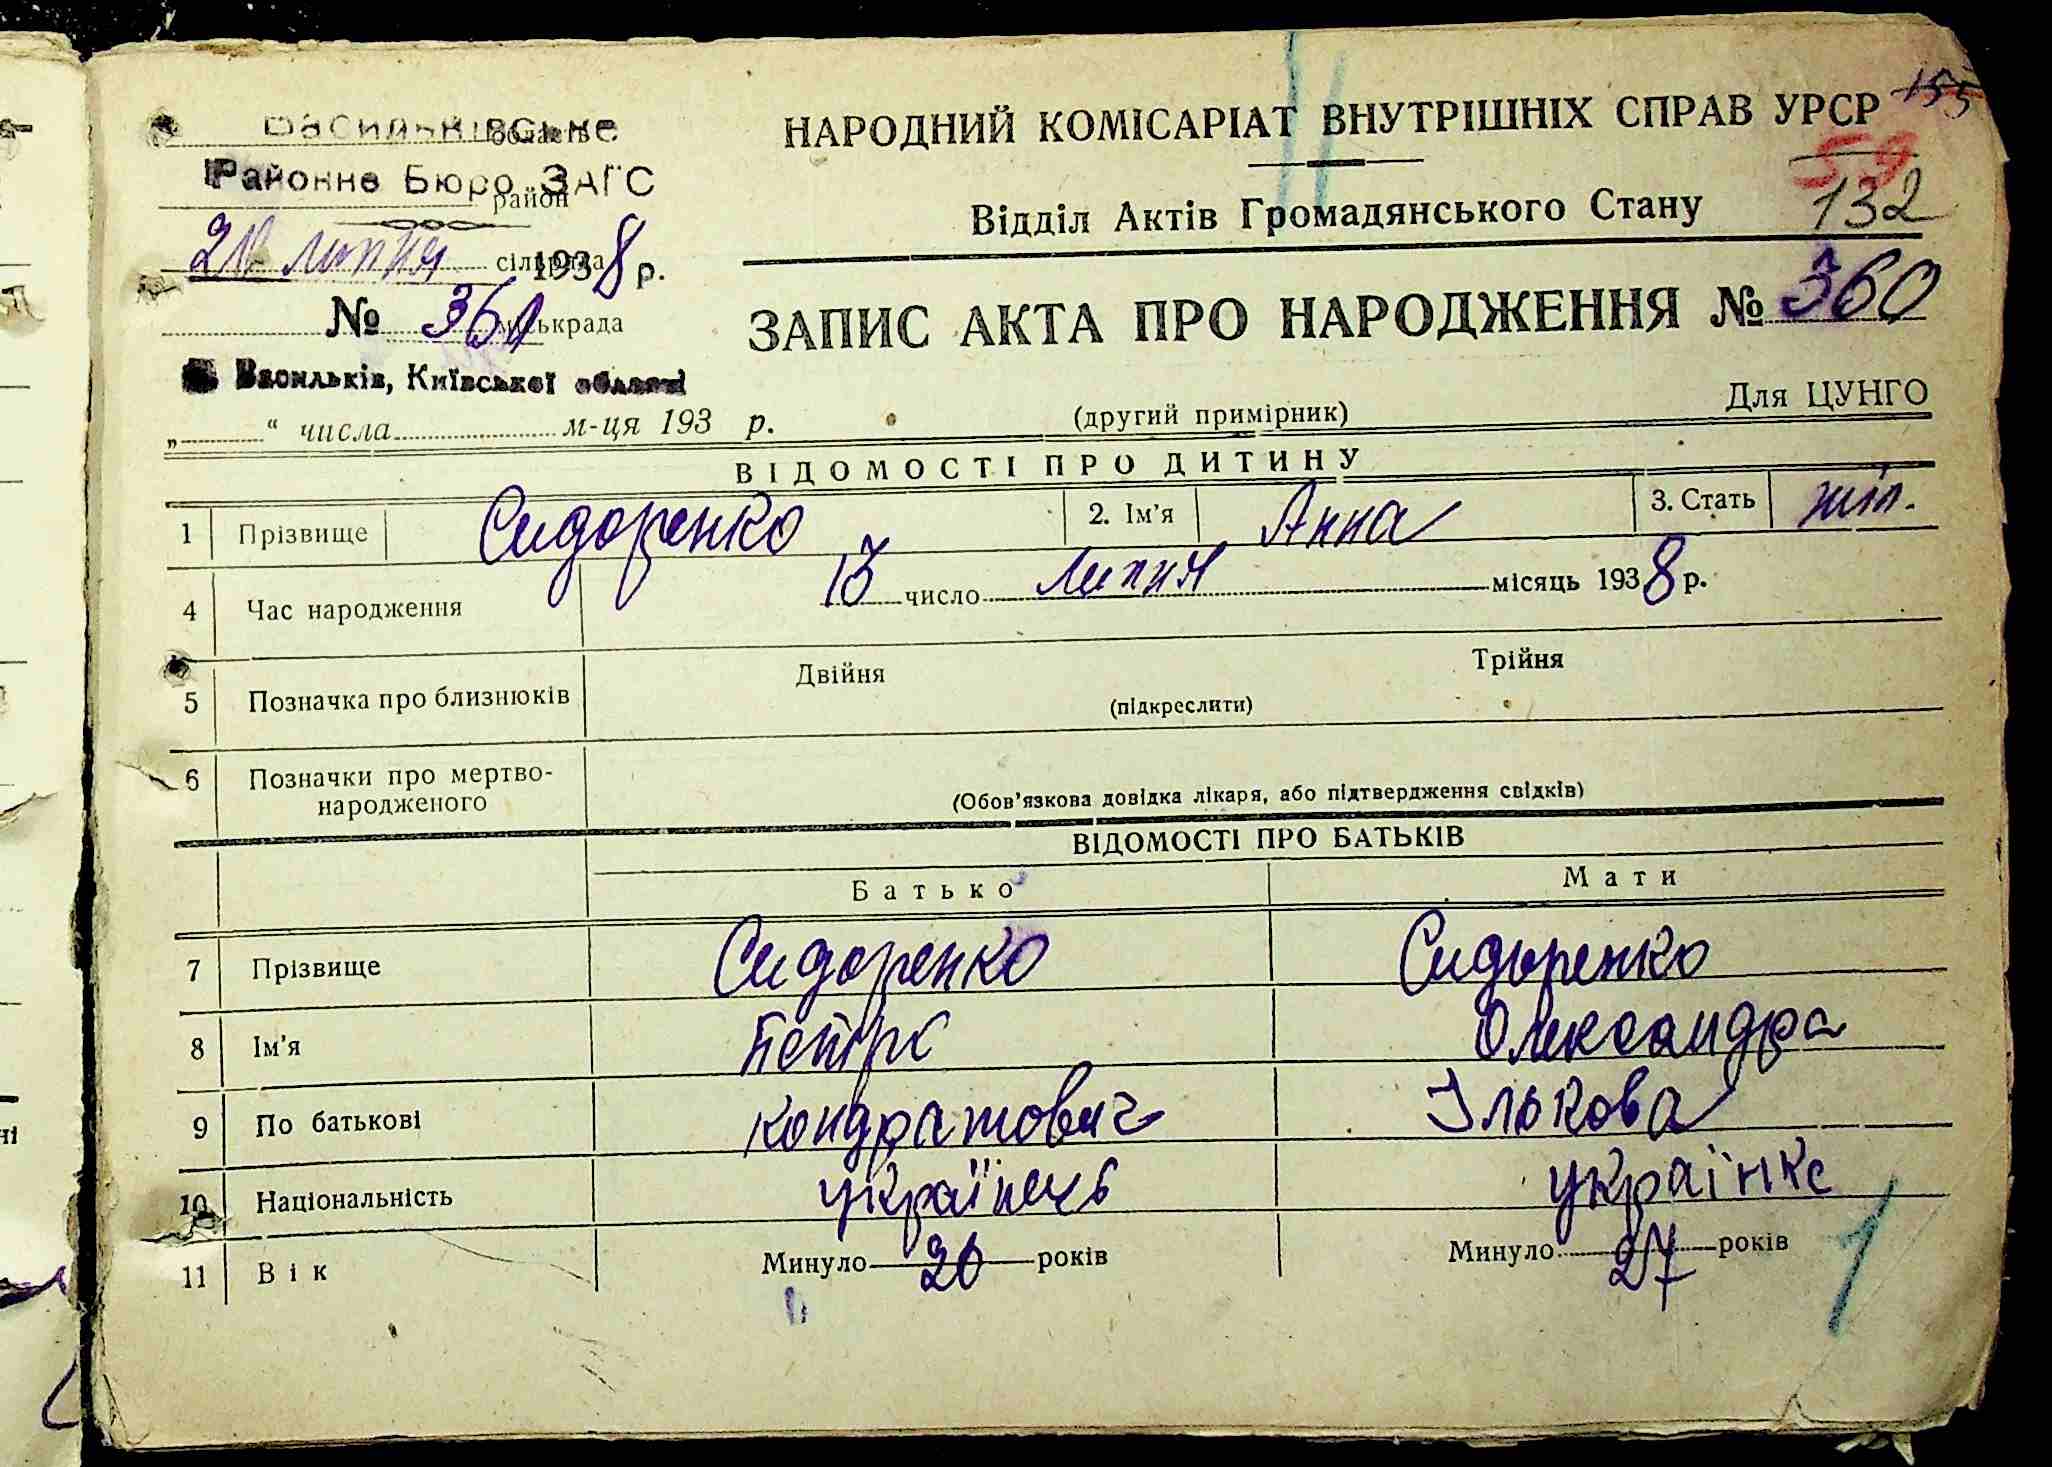 Васильківське
область
Районне Бюро ЗАГС
район
20 липня 1938 р.
сільрада
№ 360
міськрада
Васильків, Київської області
„ “ числа м-ця 193 р.
НАРОДНИЙ КОМІСАРІАТ ВНУТРІШНІХ СПРАВ УРСР
155
59
132
Відділ Актів Громадянського Стану
ЗАПИС АКТА ПРО НАРОДЖЕННЯ № 360
(другий примірник)
Для ЦУНГО
ВІДОМОСТІ ПРО ДИТИНУ
1 Прізвище Сидоренко 2. Ім'я Анна 3. Стать жін.
4 Час народження 13 число липня місяць 1938 р.
5 Позначка про близнюків Двійня Трійня
(підкреслити)
6 Позначки про мертво-
народженого
(Обов'язкова довідка лікаря, або підтвердження свідків)
ВІДОМОСТІ ПРО БАТЬКІВ
Батько Мати
7 Прізвище Сидоренко Сидоренко
8 Ім'я Петро Олександра
9 По батькові Кондратович Ількова
10 Національність українець українка
11 Вік Минуло 26 років Минуло 27 років
1